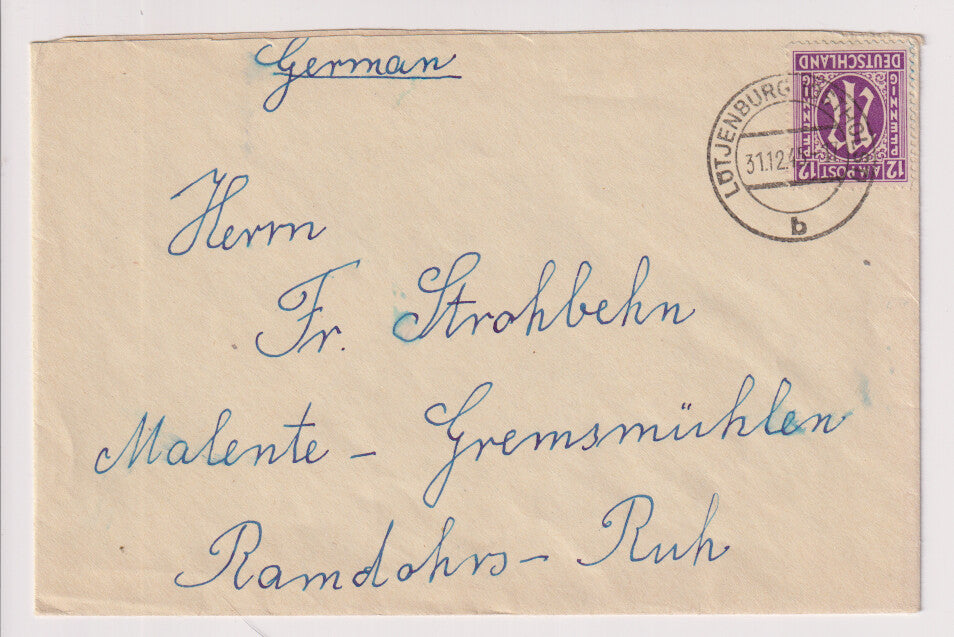 German
Herrn
Fr. Strohbehn
Malente - Gremsmühlen
Ramdohrs - Ruh
LÜTJENBURG
31.12.4
b
DEUTSCHLAND
PFENNIG
PFENNIG
12 AM POST 12